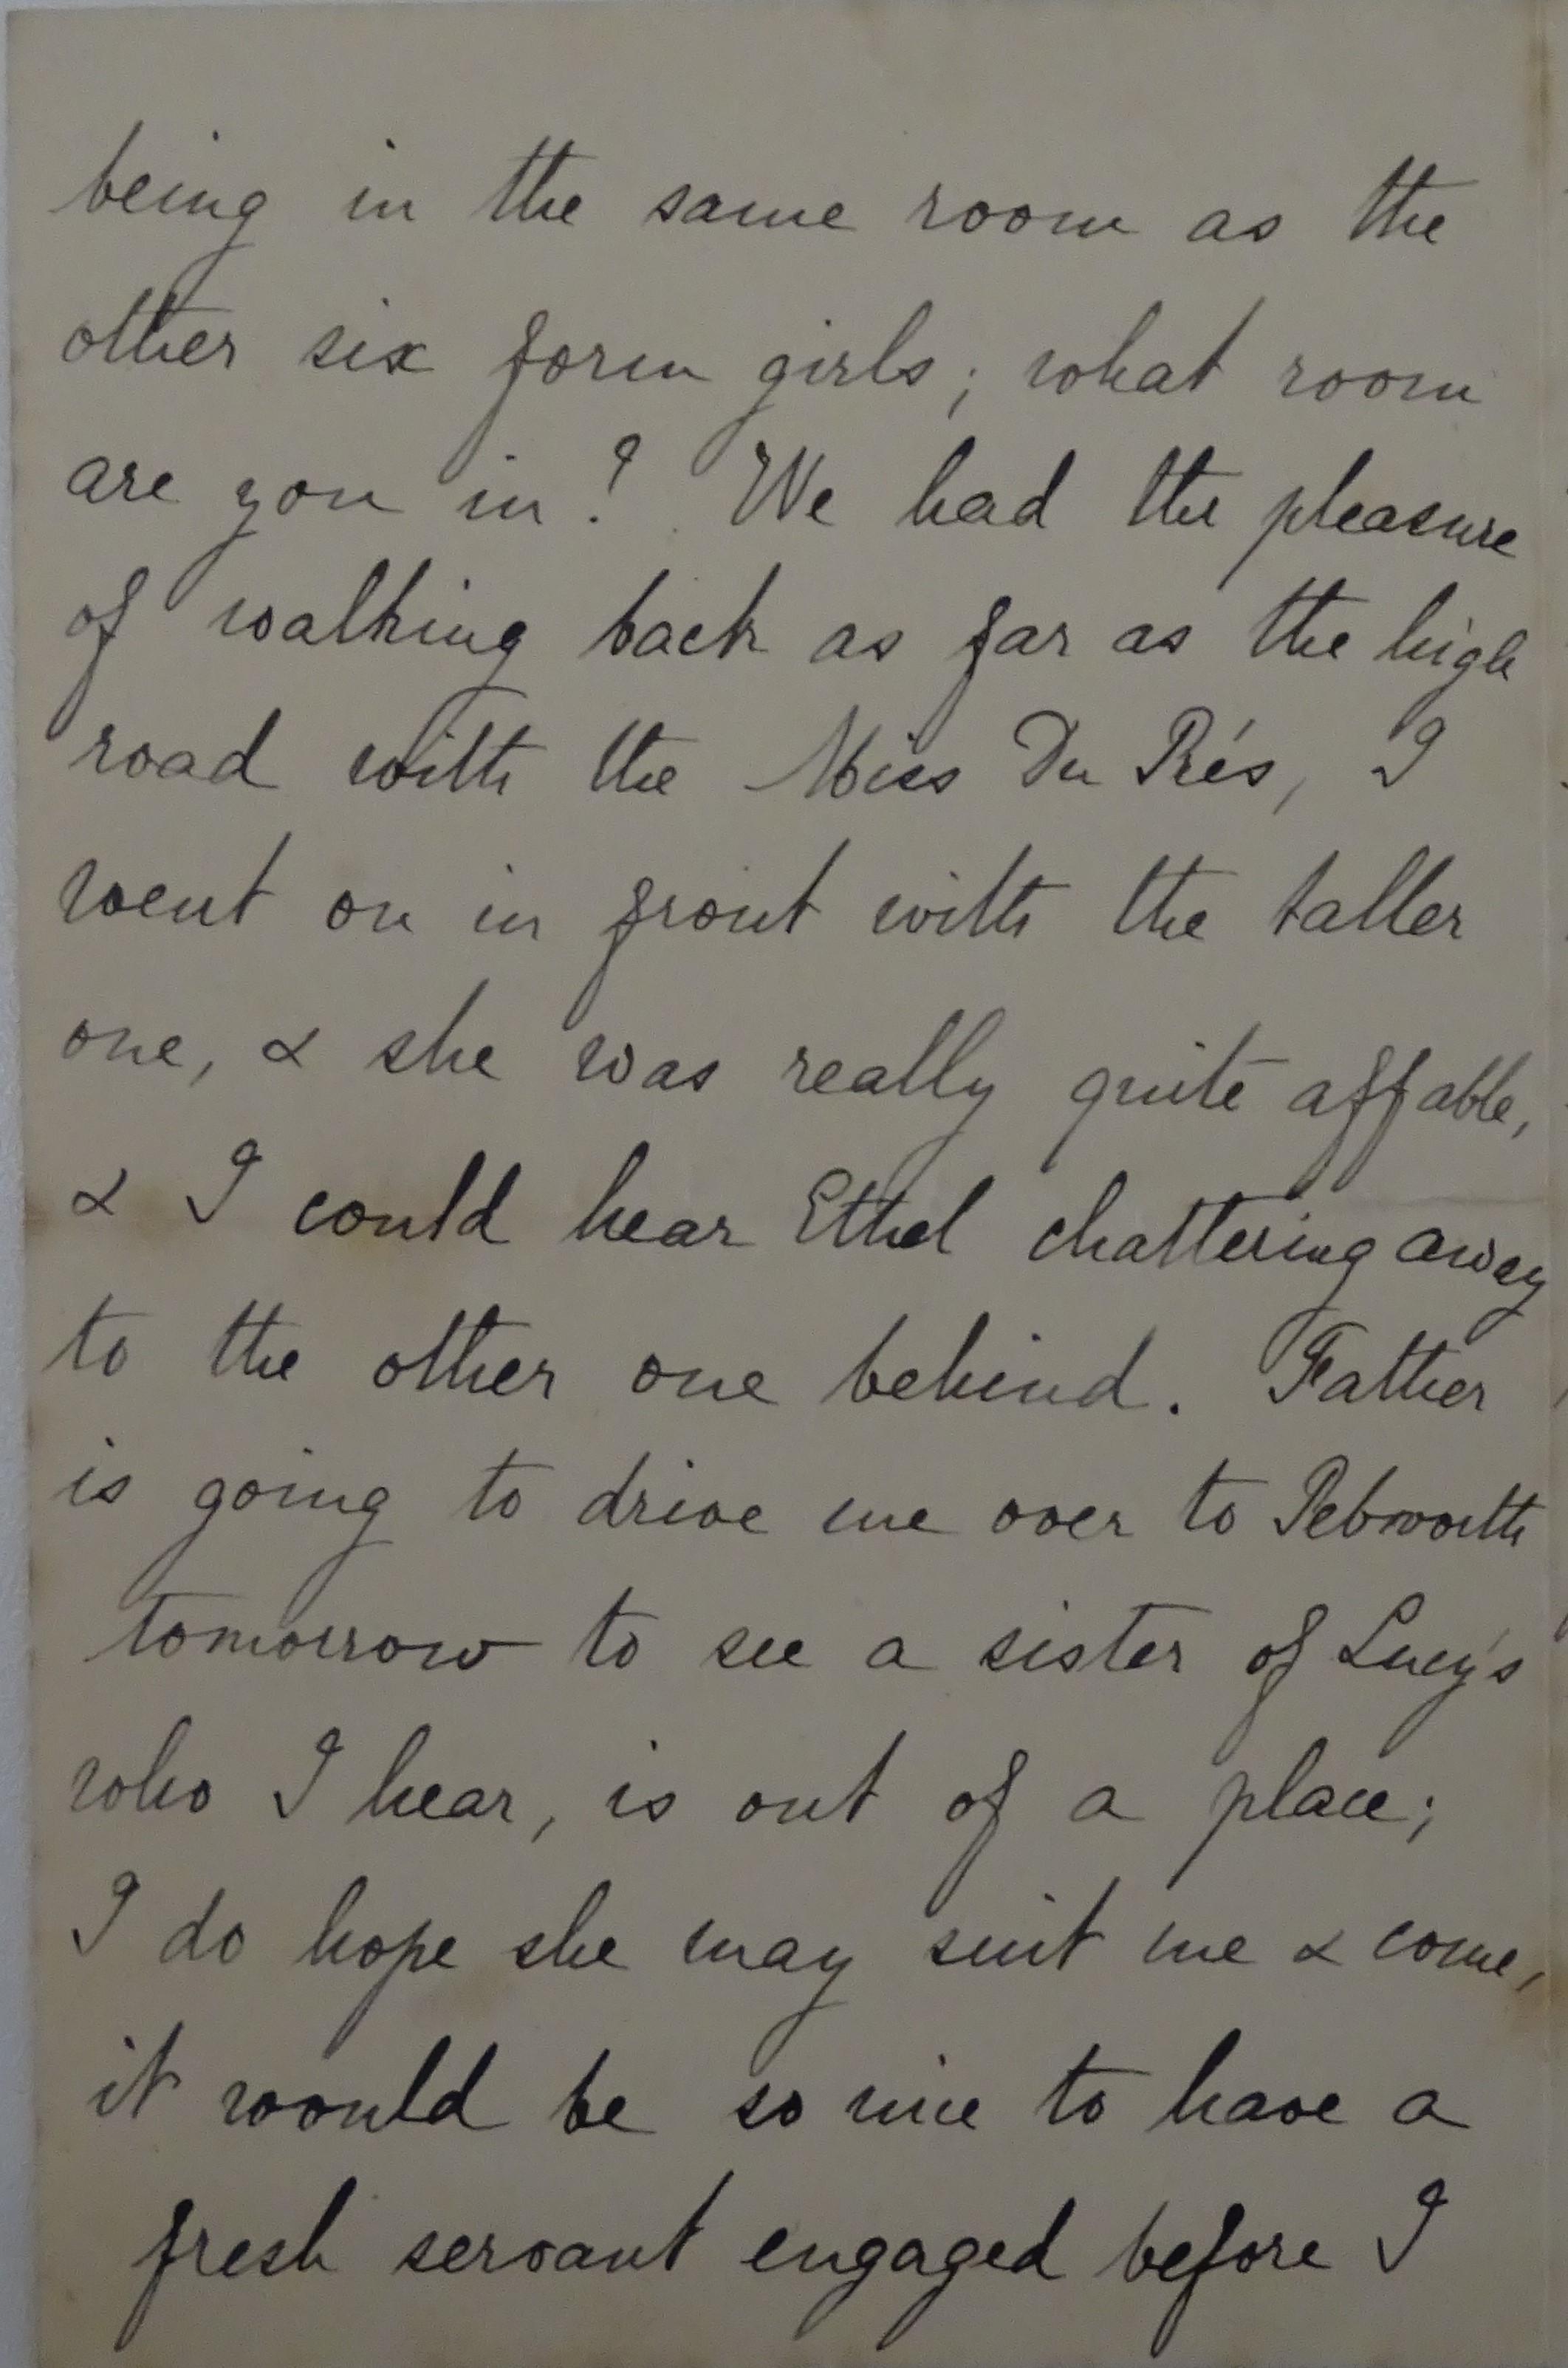 being in the same room as the
other six form girls; what room
are you in? We had the pleasure
of walking back as far as the high
road with the Miss Du Prés, I
went on in front with the taller
one, & she was really quite affable,
& I could hear Ethel chattering away
to the other one behind. Father
is going to drive me over to Pebworth
tomorrow to see a sister of Lucy's
who I hear, is out of a place;
I do hope she may suit me & come,
it would be so nice to have a
fresh servant engaged before I